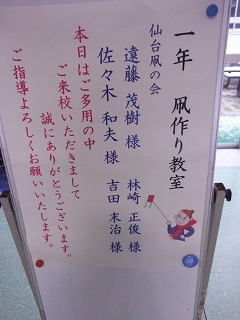 一年 凧作り教室
仙台凧の会
遠藤 茂樹 様 林崎 正俊 様
佐々木 和夫 様 吉田 末治 様
本日はご多用の中
ご来校いただきまして
誠にありがとうございます。
ご指導よろしくお願いいたします。